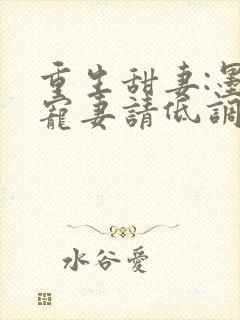 重生甜妻:墨
寵妻請低調
水谷愛